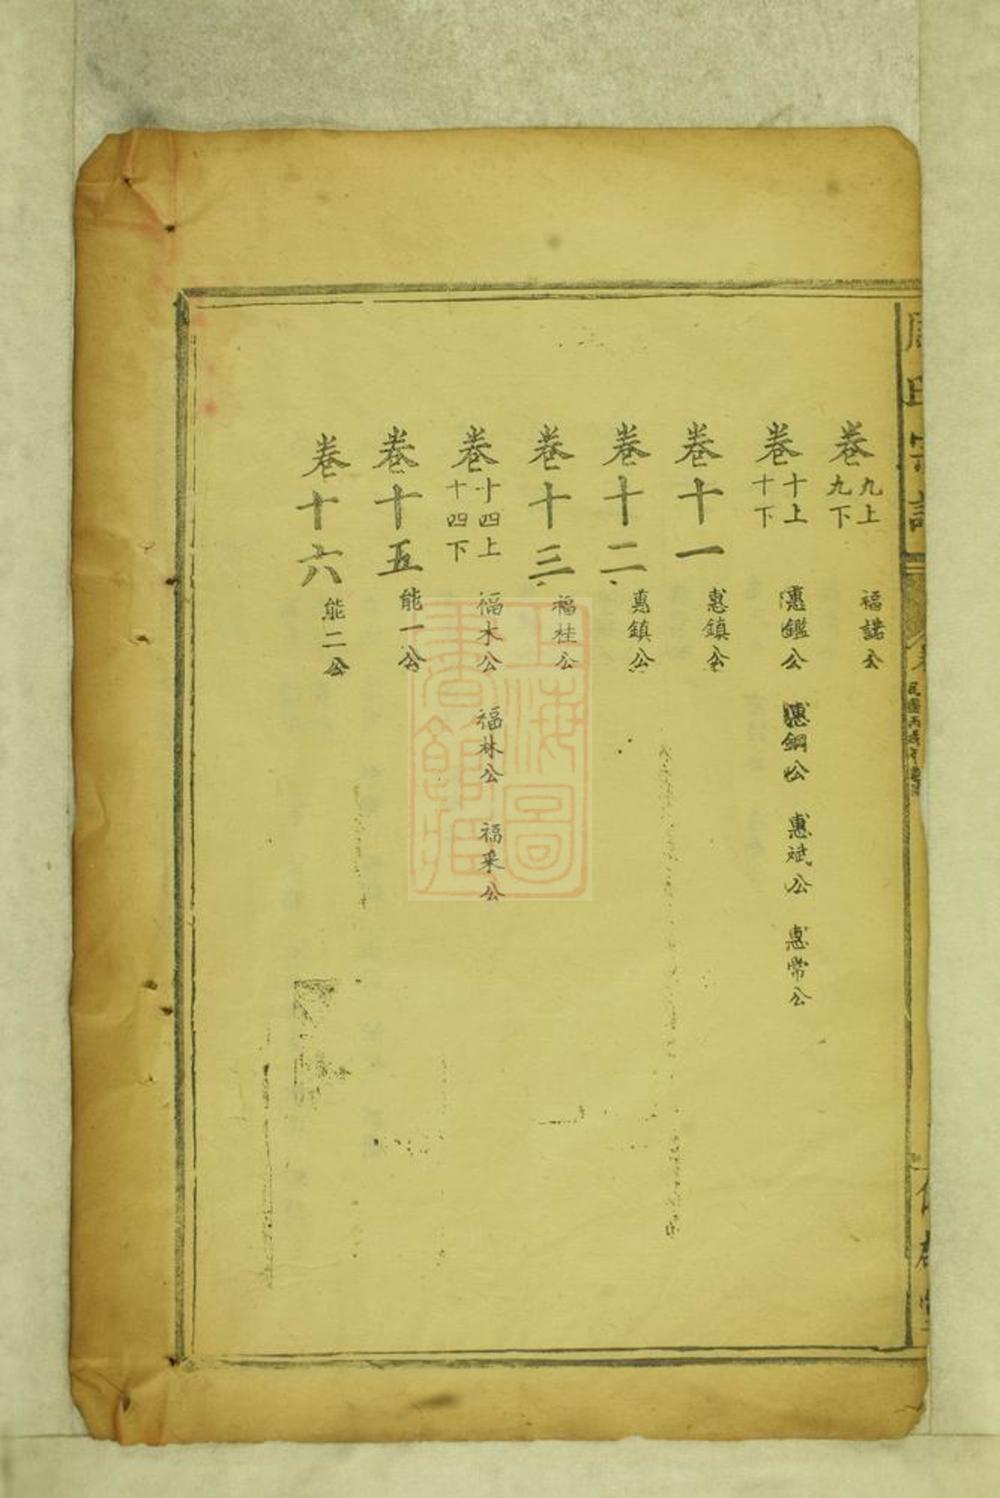 卷九上九下 福諾公
卷十上十下 惠鑑公 惠鋼公 惠斌公 惠常公
卷十一 惠鎮公
卷十二 惠鎮公
卷十三 福桂公
卷十四上十四下 福木公 福林公 福釆公
卷十五 能一公
卷十六 能二公
上海圖書館藏